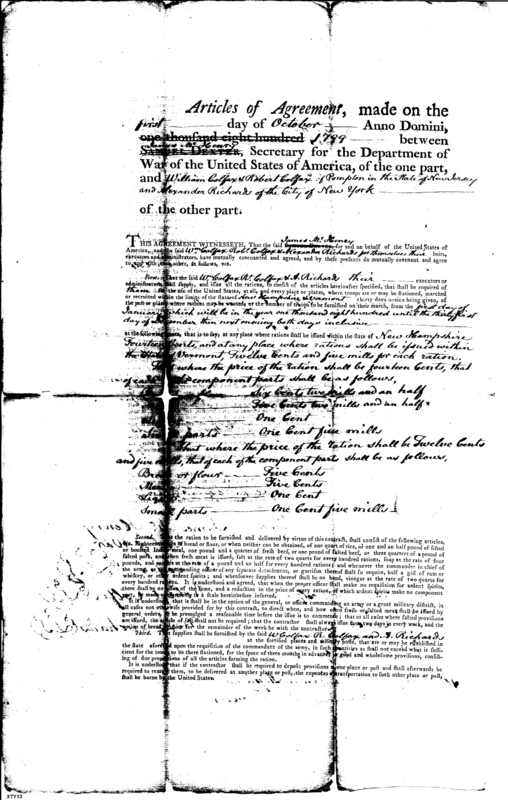 Articles of Agreement, made on the
first day of October Anno Domini,
one thousand eight hundred 1799 between
James Mc Henry
SAMUEL DEXTER, Secretary for the Department of
War of the United States of America, of the one part,
and William Colfax & Robert Colfax of Pompton in the State of New Jersey
and Alexander Richards of the City of New York
of the other part.
THIS AGREEMENT WITNESSETH, That the said James Mc Henry for and on behalf of the United States of
America, and the said Wm. Colfax Robt. Colfax & Alexander Richards for themselves their heirs,
executors and administrators, have mutually covenanted and agreed, and by these presents do mutually covenant and agree
to and with each other, as follows, viz.
First. That the said W. Colfax R. Colfax & A. Richards their executors or
administrators, shall supply, and issue all the rations, to consist of the articles hereinafter specified, that shall be required of
them for the use of the United States, at all and every place or places, where troops are or may be stationed, marched
or recruited within the limits of the States of New Hampshire & Vermont thirty days notice being given, of
the post or place where rations may be wanted, or the number of troops to be furnished on their march, from the first day of
January which will be in the year one thousand eight hundred until the thirty first
day of December then next ensuing both days inclusive
at the following prices, that is to say, at any place where rations shall be issued within the State of New Hampshire
Fourteen Cents, and at any place where rations shall be issued within
the State of Vermont, Twelve Cents and five mills for each ration.
That where the price of the ration shall be fourteen Cents, that
of each of the component parts shall be as follows,
Six Cents two mills and an half
Five Cents two mills and an half
One Cent
Small parts One Cent five mills
That where the price of the ration shall be Twelve Cents
and five mills, that of each of the component parts shall be as follows,
Bread or flour Five Cents
Meat Five Cents
Liquor One Cent
Small parts One Cent five mills
Second. That the ration to be furnished and delivered by virtue of this contract, shall consist of the following articles,
viz. Eighteen ounces of bread or flour, or when neither can be obtained, of one quart of rice, or one and an half pound of sifted
or boulted Indian meal, one pound and a quarter of fresh beef, or one pound of salted beef, or three quarters of a pound of
salted pork, and when fresh meat is issued, salt at the rate of two quarts for every hundred rations, soap at the rate of four
pounds, and candles at the rate of a pound and an half for every hundred rations; and whenever the commander in chief of
the army, or the commanding officer of any separate detachment, or garrison thereof shall so require, half a gill of rum or
whiskey, or other ardent spirits; and whensoever supplies thereof shall be on hand, vinegar at the rate of two quarts for
every hundred rations. It is understood and agreed, that when the proper officer shall make no requisition for ardent spirits,
there shall be no issues of the same, and a reduction in the price of every ration, of which ardent spirits make no component
part, be made agreeably to a scale hereinbefore inferred.
It is understood, that it shall be in the option of the general, or officer commanding an army or a great military district, in
all cases not otherwise provided for by this contract, to direct when, and how often fresh or salted meat shall be issued by
general orders, to be promulged a reasonable time before the issue is to commence; that in all cases where salted provisions
are issued, the article of salt shall not be required; that the contractor shall always issue flour two days in every week, and the
option of bread or flour for the remainder of the week be with the contractor.
Third. That supplies shall be furnished by the said W. Colfax R. Colfax and A. Richards
at the fortified places and military posts, that are or may be established in
the state aforesaid upon the requisition of the commandant of the army, in such quantities as shall not exceed what is suffi-
cient for the troops to be there stationed, for the space of three months in advance, in good and wholesome provisions, consist-
ing of due proportions of all the articles forming the ration.
It is understood that if the contractor shall be required to deposit provisions at one place or post and shall afterwards be
required to remove them, to be delivered at another place or post, the expenses of transportation to such other place or post,
shall be borne by the United States.
XTY13